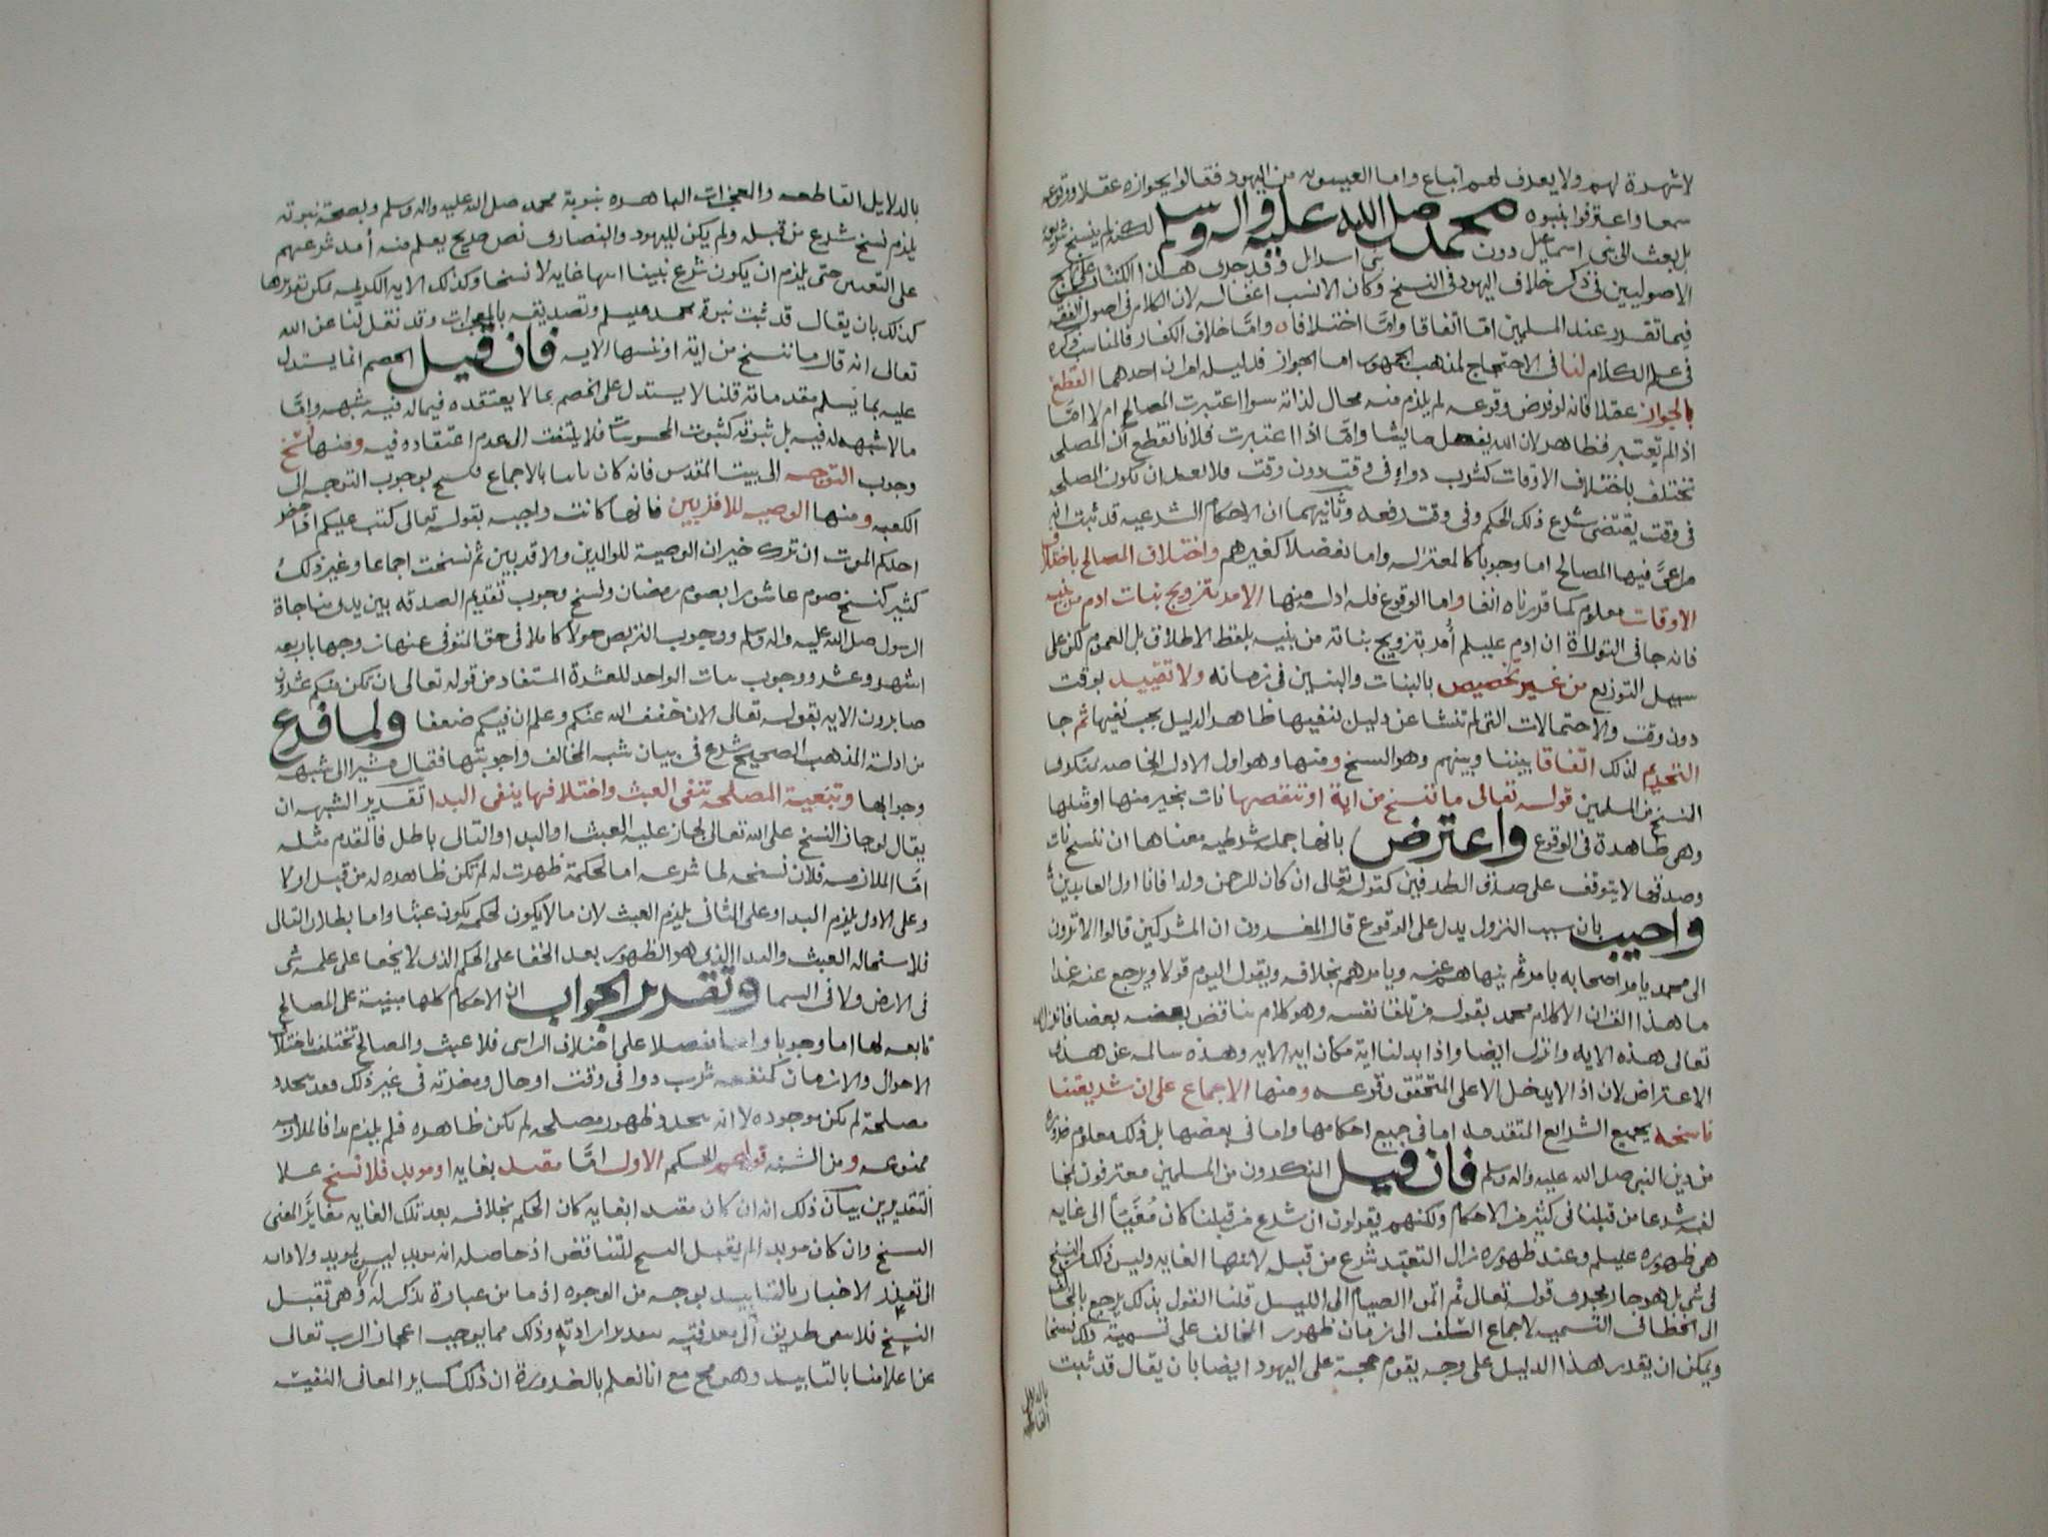 لا شهرة لهم ولا يعرف لهم اتباع واما العيسويه من اليهود فقالوا بجوازه عقلا ووقوعه
سمعا واعترفوا بنبوه محمد صلى الله عليه واله وسلم لكنه لم ينسخ شريعته
بل بعث الى بنى اسماعيل دون بنى اسرايل وقد جرى هذا الكتاب على نهج
الاصوليين فى ذكر خلاف اليهود فى النسخ وكان الانسب اغفاله لان الكلام فى اصول الفقه
فيما تقرر عند المسلمين امّا اتفاقا وامّا اختلافا وامّا خلاف الكفار فالمناسب ذكره
فى علم الكلام لنا فى الاحتجاج لمذهب الجمهور اما الجواز فدليله امران احدهما القطع
بالجواز عقلا فانه لو فرض وقوعه لم يلزم منه محال لذاته سوا اعتبرت المصالح ام لا امّا
اذا لم تعتبر فظاهر لان الله يفعل ما يشا وامّا اذا اعتبرت فلانا نقطع ان المصلحه
تختلف باختلاف الاوقات كشرب دواء فى وقت دون وقت فلا بعد ان تكون المصلحه
فى وقت يقتضى شرع ذلك الحكم وفى وقت رفعه وثانيهما ان الاحكام الشرعيه قد ثبت انه
مراعىً فيها المصالح اما وجوبا كالمعتزله واما تفضلا كغيرهم واختلاف المصالح باختلاف
الاوقات معلوم كما قررناه انفا واما الوقوع فله ادله منها الامر بتزويج بنات ادم من بنيه
فانه جا فى التوراة ان ادم عليلم أُمر بتزويج بناته من بنيه بلفظ الاطلاق بل العموم لكن على
سبيل التوزيع من غير تخصيص بالبنات والبنين فى زمانه ولا تقييد بوقت
دون وقت والاحتمالات التى لم تنشا عن دليل لنفيها ظاهر الدليل يجب نفيها ثم جا
التحريم لذلك اتفاقا بيننا وبينهم وهو النسخ ومنها وهو اول الادله الخاصه بمنكرى
النسخ من المسلمين قوله تعالى ما ننسخ من اية او ننقصها نات بخير منها او مثلها
وهى ظاهرة فى الوقوع واعترض بانها جمله شرطيه معناها ان ننسخ نات
وصدقها لا يتوقف على صدق الطرفين كقوله تعالى ان كان للرحمن ولدا فانا اول العابدين
واجيب بان سبب النزول يدل على الوقوع قال المفسرون ان المشركين قالوا الا ترون
الى محمد يامر اصحابه بامر ثم ينهاهم عنه ويامرهم بخلافه ويقول اليوم قولا ويرجع عنه غدا
ما هذا القران الا كلام محمد يقوله من تلقا نفسه وهو كلام يناقض بعضه بعضا فانزل الله
تعالى هذه الايه وانزل ايضا واذا بدلنا اية مكان ايه الايه وهذه سالمه عن هذا
الاعتراض لان اذا لا يدخل الا على المتحقق وقوعه ومنها الاجماع على ان شريعتنا
ناسخه لجميع الشرايع المتقدمه اما فى جميع احكامها واما فى بعضها بل ذلك معلوم ضرورة
من دين النبى صلى الله عليه واله وسلم فان قيل المنكرون من المسلمين معترفون بمخا
لفه شرعا من قبلنا فى كثير من الاحكام ولكنهم يقولون ان شرع من قبلنا كان مُغَيّاً الى غايه
هى ظهوره عليلم وعند ظهوره زال التعبد بشرع من قبله لانتها الغايه وليس ذلك من النسخ
فى شى بل هو جار مجرى قوله تعالى ثم اتموا الصيام الى الليل قلنا القول بذلك يرجع بالمخالف
الى الخطا فى التسميه لاجماع السلف الى زمان ظهور المخالف على تسميته ذلك نسخا
ويمكن ان يقرر هذا الدليل على وجه يقوم حجة على اليهود ايضا بان يقال قد ثبت
بالدلايل القاطعه
بالدلايل القاطعه والمعجزات الباهره نبوة محمد صلى الله عليه واله وسلم وبصحة نبوته
يلزم نسخ شرع من قبله ولم يكن لليهود والنصارى نص صريح يعلم منه أمد شرعهم
على التعيين حتى يلزم ان يكون شرع نبينا انتها غايه لا نسخا وكذلك الايه الكريمه يمكن تقريرها
كذلك بان يقال قد ثبت نبوة محمد عليلم وتصديقه بالمعجزات وقد نقل لنا عن الله
تعالى انه قال ما ننسخ من اية او ننسها الايه فان قيل الخصم انما يستدل
عليه بما يسلم مقدماته قلنا لا يستدل على الخصم بما لا يعتقده فيما له فيه شبهه وامّا
ما لا شبهه له فيه بل ثبوته كثبوت المحسوسات فلا يلتفت الى عدم اعتقاده فيه ومنها نسخ
وجوب التوجه الى بيت المقدس فانه كان ثابتا بالاجماع فنسخ بوجوب التوجه الى
الكعبه ومنها الوصيه للاقربين فانها كانت واجبه بقوله تعالى كتب عليكم اذا حضر
احدكم الموت ان ترك خيرا الوصية للوالدين والاقربين ثم نسخت اجماعا وغير ذلك
كثير كنسخ صوم عاشورا بصوم رمضان ونسخ وجوب تقديم الصدقه بين يدى مناجاة
الرسول صلى الله عليه واله وسلم ووجوب التربص حولا كاملا فى حق المتوفى عنها زوجها باربعه
اشهر وعشر ووجوب ثبات الواحد للعشرة المستفاد من قوله تعالى ان يكن منكم عشرون
صابرون الايه بقوله تعالى الان خفف الله عنكم وعلم ان فيكم ضعفا ولما فرع
من ادلة المذهب الصحيح شرع فى بيان شبه المخالف واجوبتها فقال مشيرا الى شبهه
وجوابها وتبعية المصلحه تنفى العبث واختلافها ينفى البدا تقدير الشبهه ان
يقال لو جاز النسخ على الله تعالى لجاز عليه العبث او البدا والتالى باطل فالمقدم مثله
امّا الملازمه فلان نسخه لما شرعه اما لحكمة ظهرت له لم تكن ظاهره له من قبل او لا
وعلى الاول يلزم البدا وعلى الثانى يلزم العبث لان ما لا يكون لحكمه يكون عبثا واما بطلان التالى
فلاستحاله العبث والبدا الذى هو الظهور بعد الخفا على الحكيم الذى لا يخفا على علمه شى
فى الارض ولا فى السما وتقرير الجواب ان الاحكام كلها مبنية على المصالح
تابعه لها اما وجوبا واما تفضلا على اختلاف الراى فلا عبث والمصالح تختلف باختلاف
الاحوال والازمان كمنفعه شرب دوا فى وقت او حال ومضرته فى غير ذلك فقد تجدد
مصلحة لم تكن موجوده لا انه تجدد ظهور مصلحه لم تكن ظاهره فلم يلزم بدا فالملازمه
ممنوعه ومن الشبه قولهم الحكم الاول امّا مقيد بغايه او موبد فلا نسخ علا
التقديرين بيان ذلك انه ان كان مقيدا بغايه كان الحكم بخلافه بعد تلك الغايه مغايرًا لمعنى
النسخ وان كان موبدا لم يقبل النسخ للتناقض اذ حاصله انه موبد ليس بموبد ولادائه
الى تعذر الاخبار بالتابيد بوجه من الوجوه اذ ما من عبارة تذكر له الا وهى تقبل
النسخ فلا يبقى طريق الى معرفته بعد ارادته وذلك مما يوجب اعجاز الرب تعالى
عن اعلامنا بالتابيد وهو مح مع انا نعلم بالضرورة ان ذلك كساير المعانى النفيسة